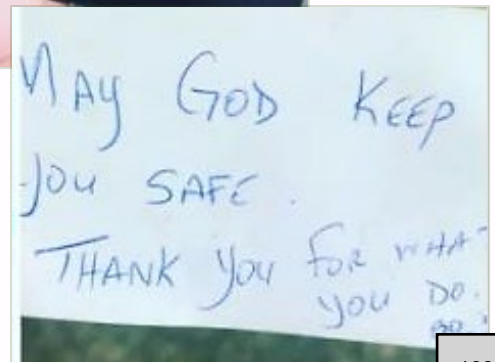 MAY GOD KEEP
YOU SAFE.
THANK YOU FOR WHAT
YOU DO.